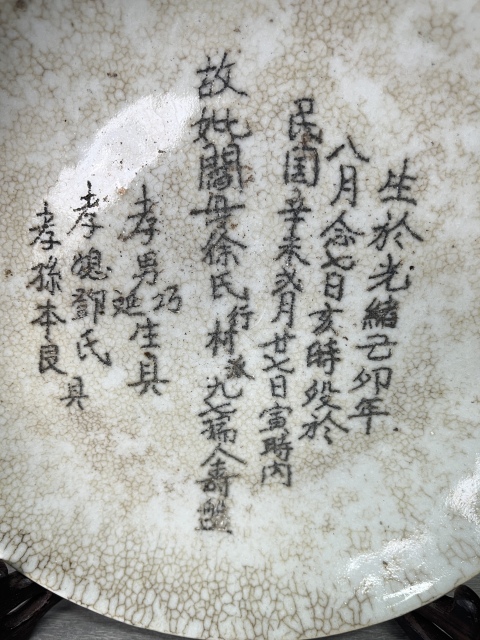 生於光緒己卯年
八月念七日亥時歿於
民国辛未戌月廿七日寅時內
故妣閣母徐氏行村派九七孺人壽盌
孝男 巧 延生具
孝媳鄧氏 具
孝孫本良